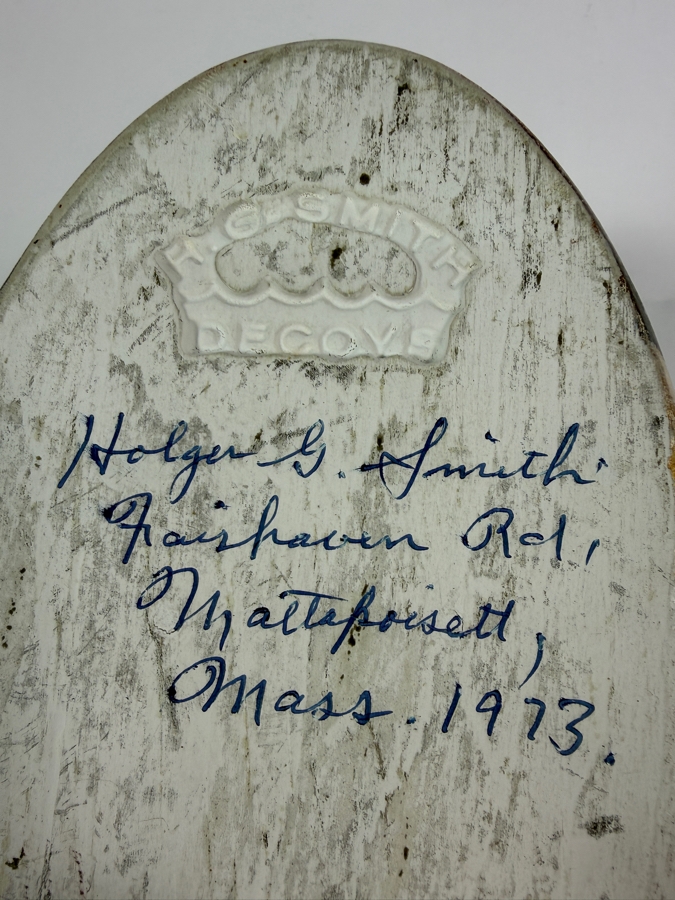 H. G. SMITH
DECOYS
Holger G. Smith
Fairhaven Rd,
Mattapoisett,
Mass. 1973.